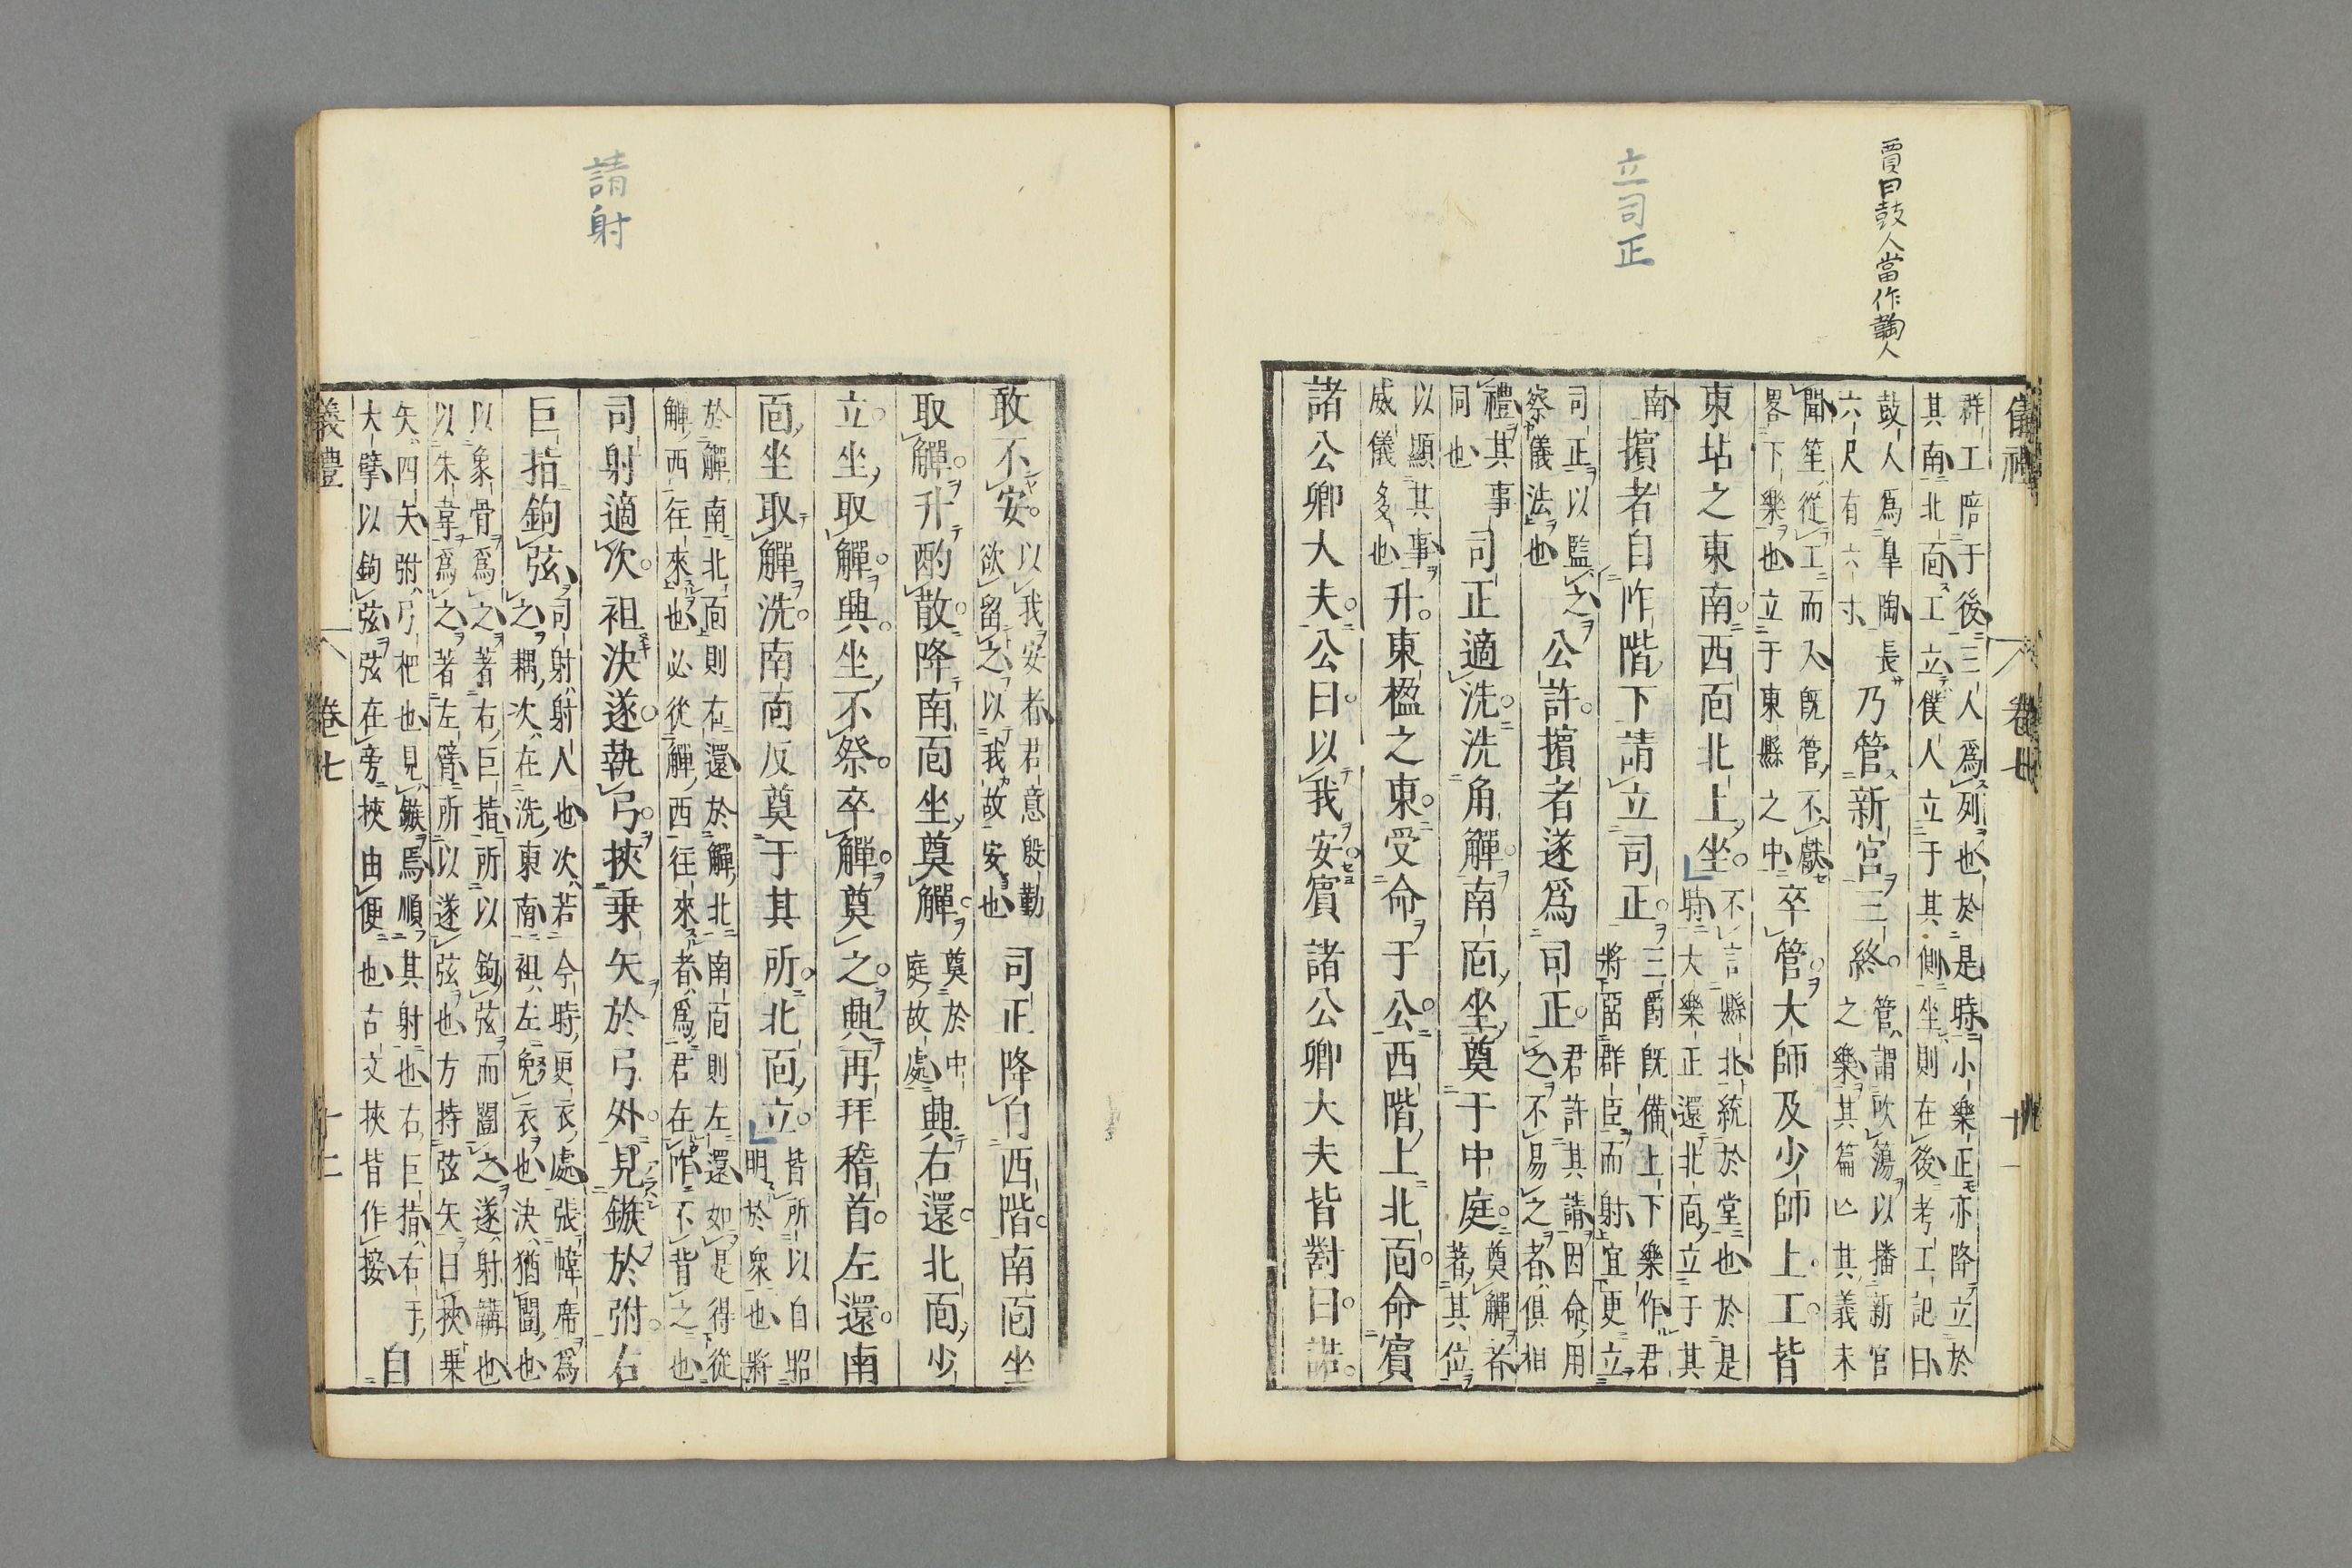 賈曰鼓人當作鞠人
立司正
儀禮 卷七 十一
群工陪于後三人爲列也於是時小樂正亦降立於
其南北面工立僕人立于其側坐則在後考工記曰
鼓人爲皐陶長
六尺有六寸
乃管新宮三終
管謂吹簜以播新宮
之樂其篇亡其義未
聞笙從工而入既管不獻
畧下樂也立于東縣之中
卒管大師及少師上工皆
東坫之東南西面北上坐
不言縣北統於堂也於是
時大樂正還北面立于其
南
擯者自阼階下請立司正
三爵既備上下樂作君
將畱群臣而射宜更立
司正以監之
察儀法也
公許擯者遂爲司正
君許其請因命用
之不易之者俱相
禮其事
同也
司正適洗洗角觶南面坐奠于中庭
奠觶者
著其位
以顯其事
威儀多也
升東楹之東受命于公西階上北面命賓
諸公卿大夫公曰以我安賓諸公卿大夫皆對曰諾
請射
敢不安
以我安者君意殷勤
欲留之以我故安也
司正降自西階南面坐
取觶升酌散降南面坐奠觶
奠於中
庭故處
興右還北面少
立坐取觶興坐不祭卒觶奠之興再拜稽首左還南
面坐取觶洗南面反奠于其所北面立
皆所以自昭
明於衆也將
於觶南北面則右還於觶北南面則左還如是得從
觶西往來也必從觶西往來者爲君在阼不背之也
司射適次袒決遂執弓挾乗矢於弓外見鏃於弣右
巨指鉤弦
司射射人也次若今時更衣處張幃席爲
之耦次在洗東南袒左免衣也決猶闓也
以象骨爲之著右巨指所以鉤弦而闓之遂射韝也
以朱韋爲之著左臂所以遂弦也方持弦矢曰挾乗
矢四矢弣弓杷也見鏃焉順其射也右巨指右手
大擘以鉤弦弦在旁挾由便也古文挾皆作接
自
儀禮 卷七 十二